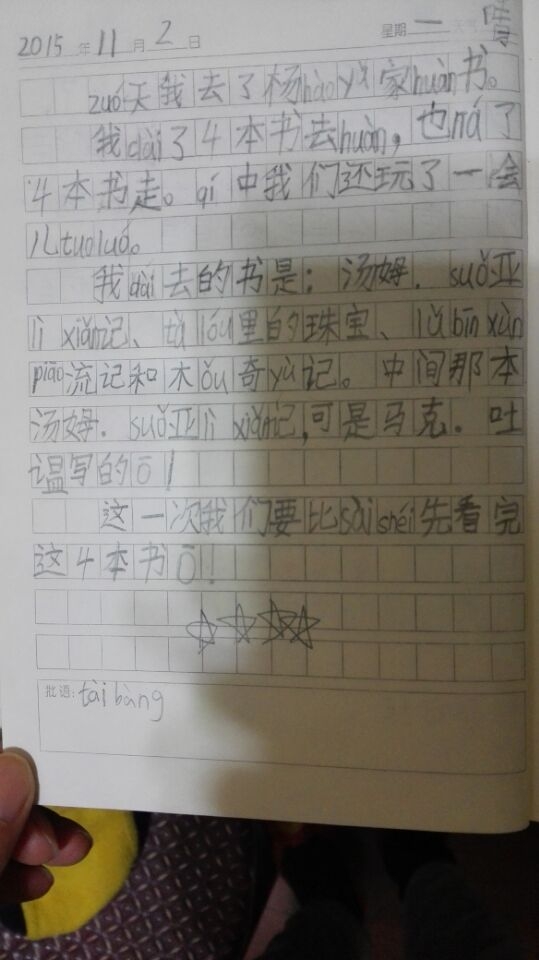 2015年11月2日 星期一 天气 晴
zuó天我去了杨hàoyǔ家huàn书。
我dài了4本书去huàn，也ná了
4本书走。qí中我们还玩了一会
儿tuoluó。
我dài去的书是：汤姆．suǒ亚
lì xiǎn记、tǎ lóu里的珠宝、lǔ bīn xùn
piāo流记和木ǒu奇yù记。中间那本
汤姆．suǒ亚lì xiǎn记，可是马克．吐
温写的ō！
这一次我们要比sài shéi先看完
这4本书ō！
批语：tài bàng